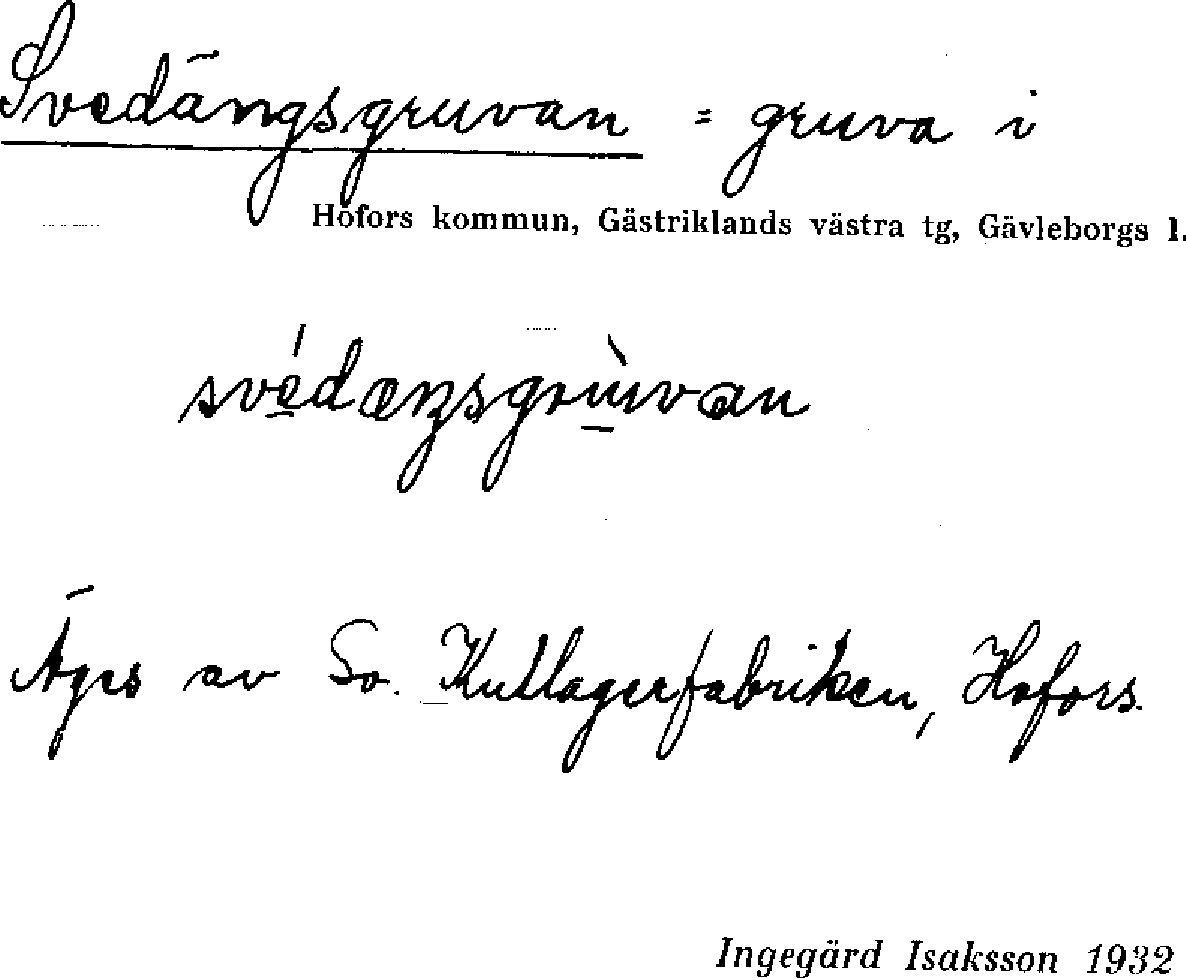 Svedängsgruvan = gruva i
Hofors kommun, Gästriklands västra tg, Gävleborgs l.
svédæŋsgrùvan
Äges av Sv. Kullagerfabriken, Hofors.
Ingegärd Isaksson 1932